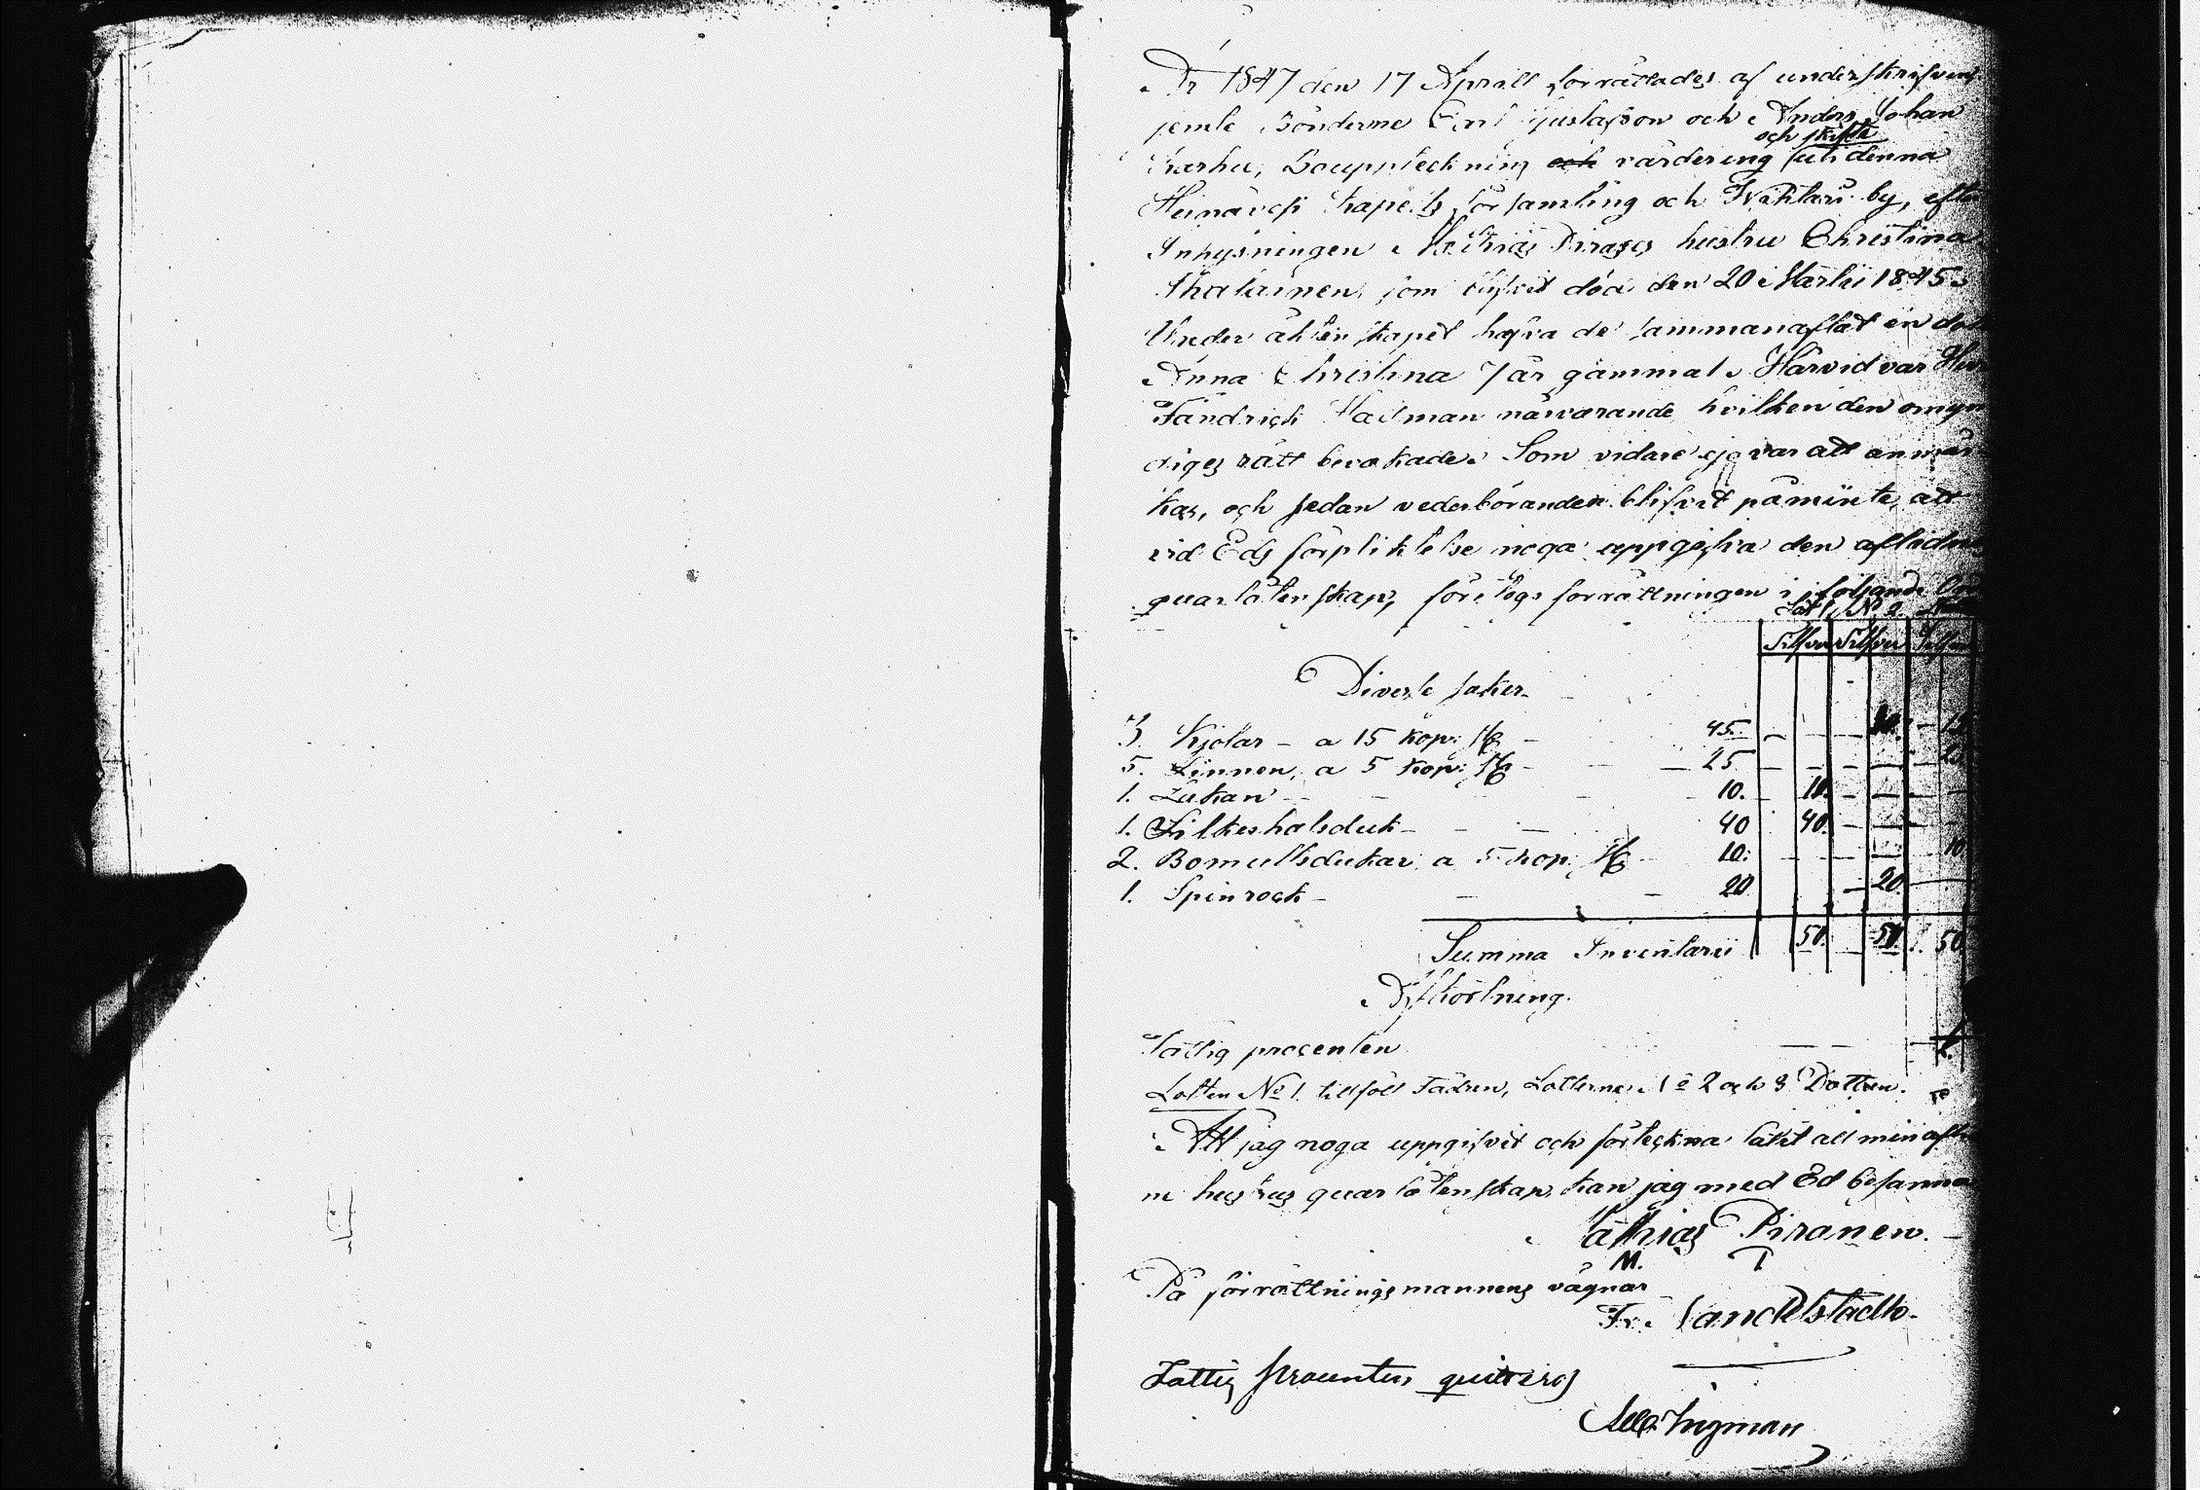 År 1847 den 17 Aprill förrättades af underskrifven
jemte Bönderne Carl Gustafson och Anders Johan
och skifte
Karhu, Bouppteckning och värdering uti denna
Heinävesi Kapells församling och by, efter
Inhysningen Mathias hustru Christina
som blifvit död den 20 Martii 1845.
Under äktenskapet hafva de sammanaflat en
Anna Christina 7 år gammal. Härvid var
Fändrich närvarande hvilken den omyn
diges rätt bevakade. Som vidare ej var att anmär
kas, och sedan vederböranden blifvit påminte, att
vid Eds förpliktelse noga uppgifva den aflidnes
quarlåtenskap, företogs förrättningen i följande
Lot 1. No 2.
Silfver Silfver Silfver
Diverse saker
3. Kjolar - a 15 kop: St - 45. - - - 30. - 15
5. Linnen, a 5 kop: St - - 25 - - - - - 25
1. Lakan - - - - 10. - 10. - - - -
1. Silkeshalsduk - - - 40 40. - - -
2. Bomullsdukar a 5 kop: St - 10: - - - 10.
1. Spinrock - - - 20 - 20. -
Summa Inventarii 50. 50. 50.
Afkortning.
Fattig procenten - -
Lotten No 1. tillföll Fadren, Lotterne No 2 och 3 Dottren.
Att jag noga uppgifvit och förteckna låtit all min afl
ne hustrus quarlåtenskap, kan jag med Ed besanna
Mathias Piranen.
M. P.
På förrättningsmannens vägnar
Fr. Sandelstadh.
Fattig procenten quitteras
Ingman